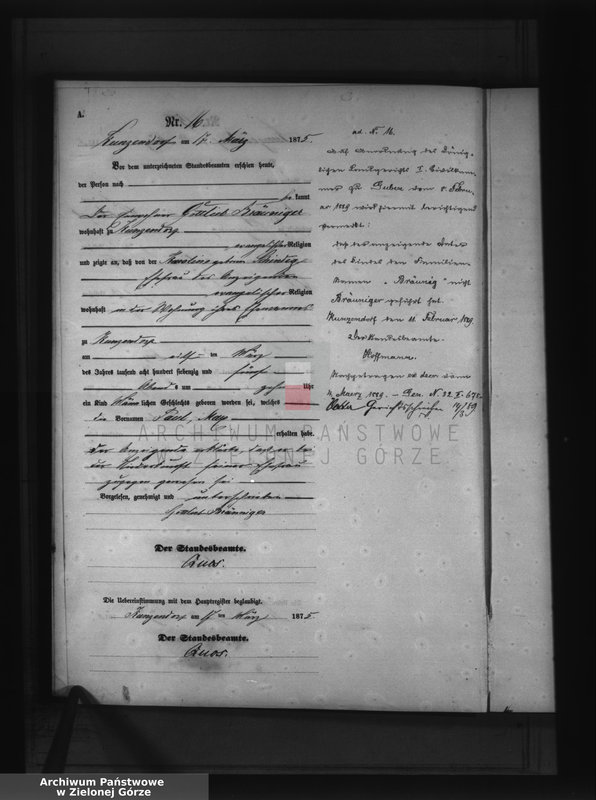 A.
Nr. 16.
Kunzendorf am 17. März 1875.
Vor dem unterzeichneten Standesbeamten erschien heute,
der Person nach
bekannt
Der Gottlieb Bräuniger
wohnhaft zu Kunzendorf
evangelischer Religion
und zeigte an, daß von der Karoline geborne
Ehefrau des Anzeigenden
evangelischer Religion
wohnhaft in der Wohnung ihres Ehemannes
zu Kunzendorf
am März
des Jahres tausend acht hundert siebenzig und fünf
Abends um zehn Uhr
ein Kind männlichen Geschlechts geboren worden sei, welches
die Vornamen Paul, Max
erhalten habe.
Der Anzeigende erklärte, daß er bei
der Niederkunft seiner Ehefrau
zugegen gewesen sei
Vorgelesen, genehmigt und unterschrieben
Gottlieb Bräuniger
Der Standesbeamte.
Die Uebereinstimmung mit dem Hauptregister beglaubigt.
Kunzendorf am 17ten März 1875
Der Standesbeamte.
ad. N. 16.
Auf Anordnung des König-
lichen Landgerichts I. Civilkam-
mer zu Guben vom 8. Febru-
ar 1889 wird hiermit berichtigend
vermerkt:
daß der anzeigende Vater
des Kindes den Familien-
namen "Bräunig" nicht
Bräuniger geführt hat.
Kunzendorf den 11. Februar 1889.
Der Standesbeamte.
Hoffmann.
Nachgetragen
Gerichtsschreiber
ARCHIWUM PAŃSTWOWE
W ZIELONEJ GÓRZE
Archiwum Państwowe
w Zielonej Górze